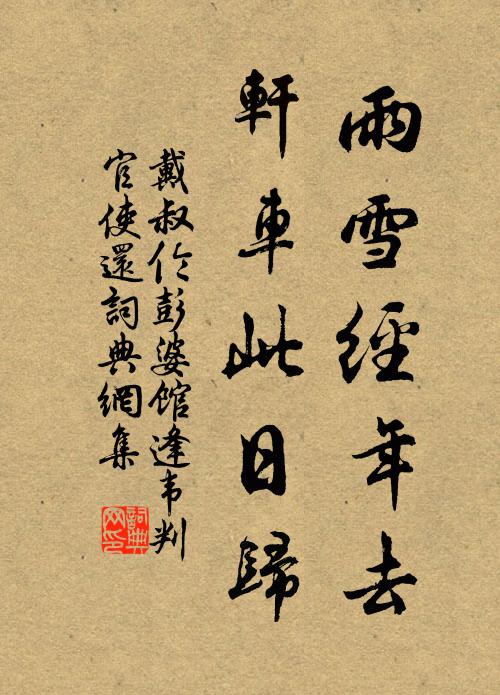 雨雪經年去
軒車此日歸
戴叔伦彭婆館逢韦判
官使還詞典網集
詞典
网印